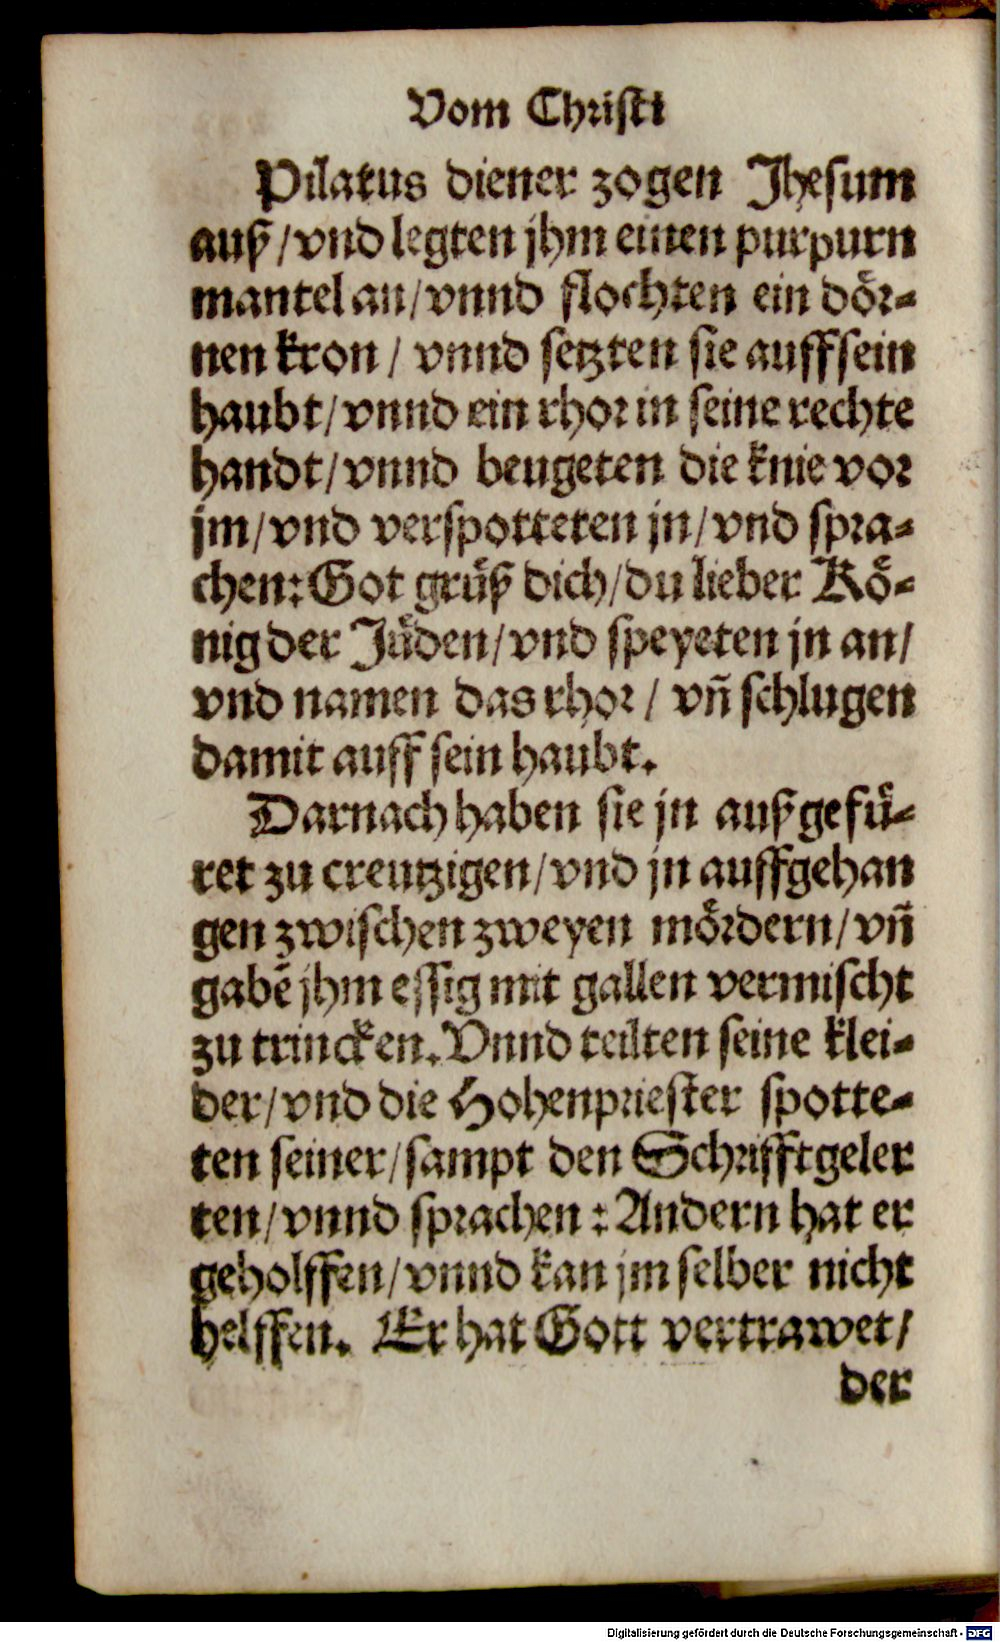 Vom Christi
Pilatus diener zogen Jhesum
auß/vnd legten jhm einen purpurn
mantel an/vnnd flochten ein doͤr-
nen kron/ vnnd setzten sie auff sein
haubt/vnnd ein rhor in seine rechte
handt/vnnd beugeten die knie vor
jm/vnd verspotteten jn/vnd spra-
chen: Got gruͤß dich/du lieber Koͤ-
nig der Juͤden/vnd speyeten jn an/
vnd namen das rhor/ vñ schlugen
damit auff sein haubt.
Darnach haben sie jn auß gefuͤ-
ret zu creutzigen/vnd jn auffgehan
gen zwischen zweyen moͤrdern/vñ
gabẽ jhm essig mit gallen vermischt
zu trincken. Vnnd teilten seine klei-
der/vnd die Hohenpriester spotte-
ten seiner/sampt den Schrifftgeler
ten/vnnd sprachen: Andern hat er
geholffen/vnnd kan jm selber nicht
helffen. Er hat Gott vertrawet/
der
Digitalisierung gefördert durch die Deutsche Forschungsgemeinschaft - DFG